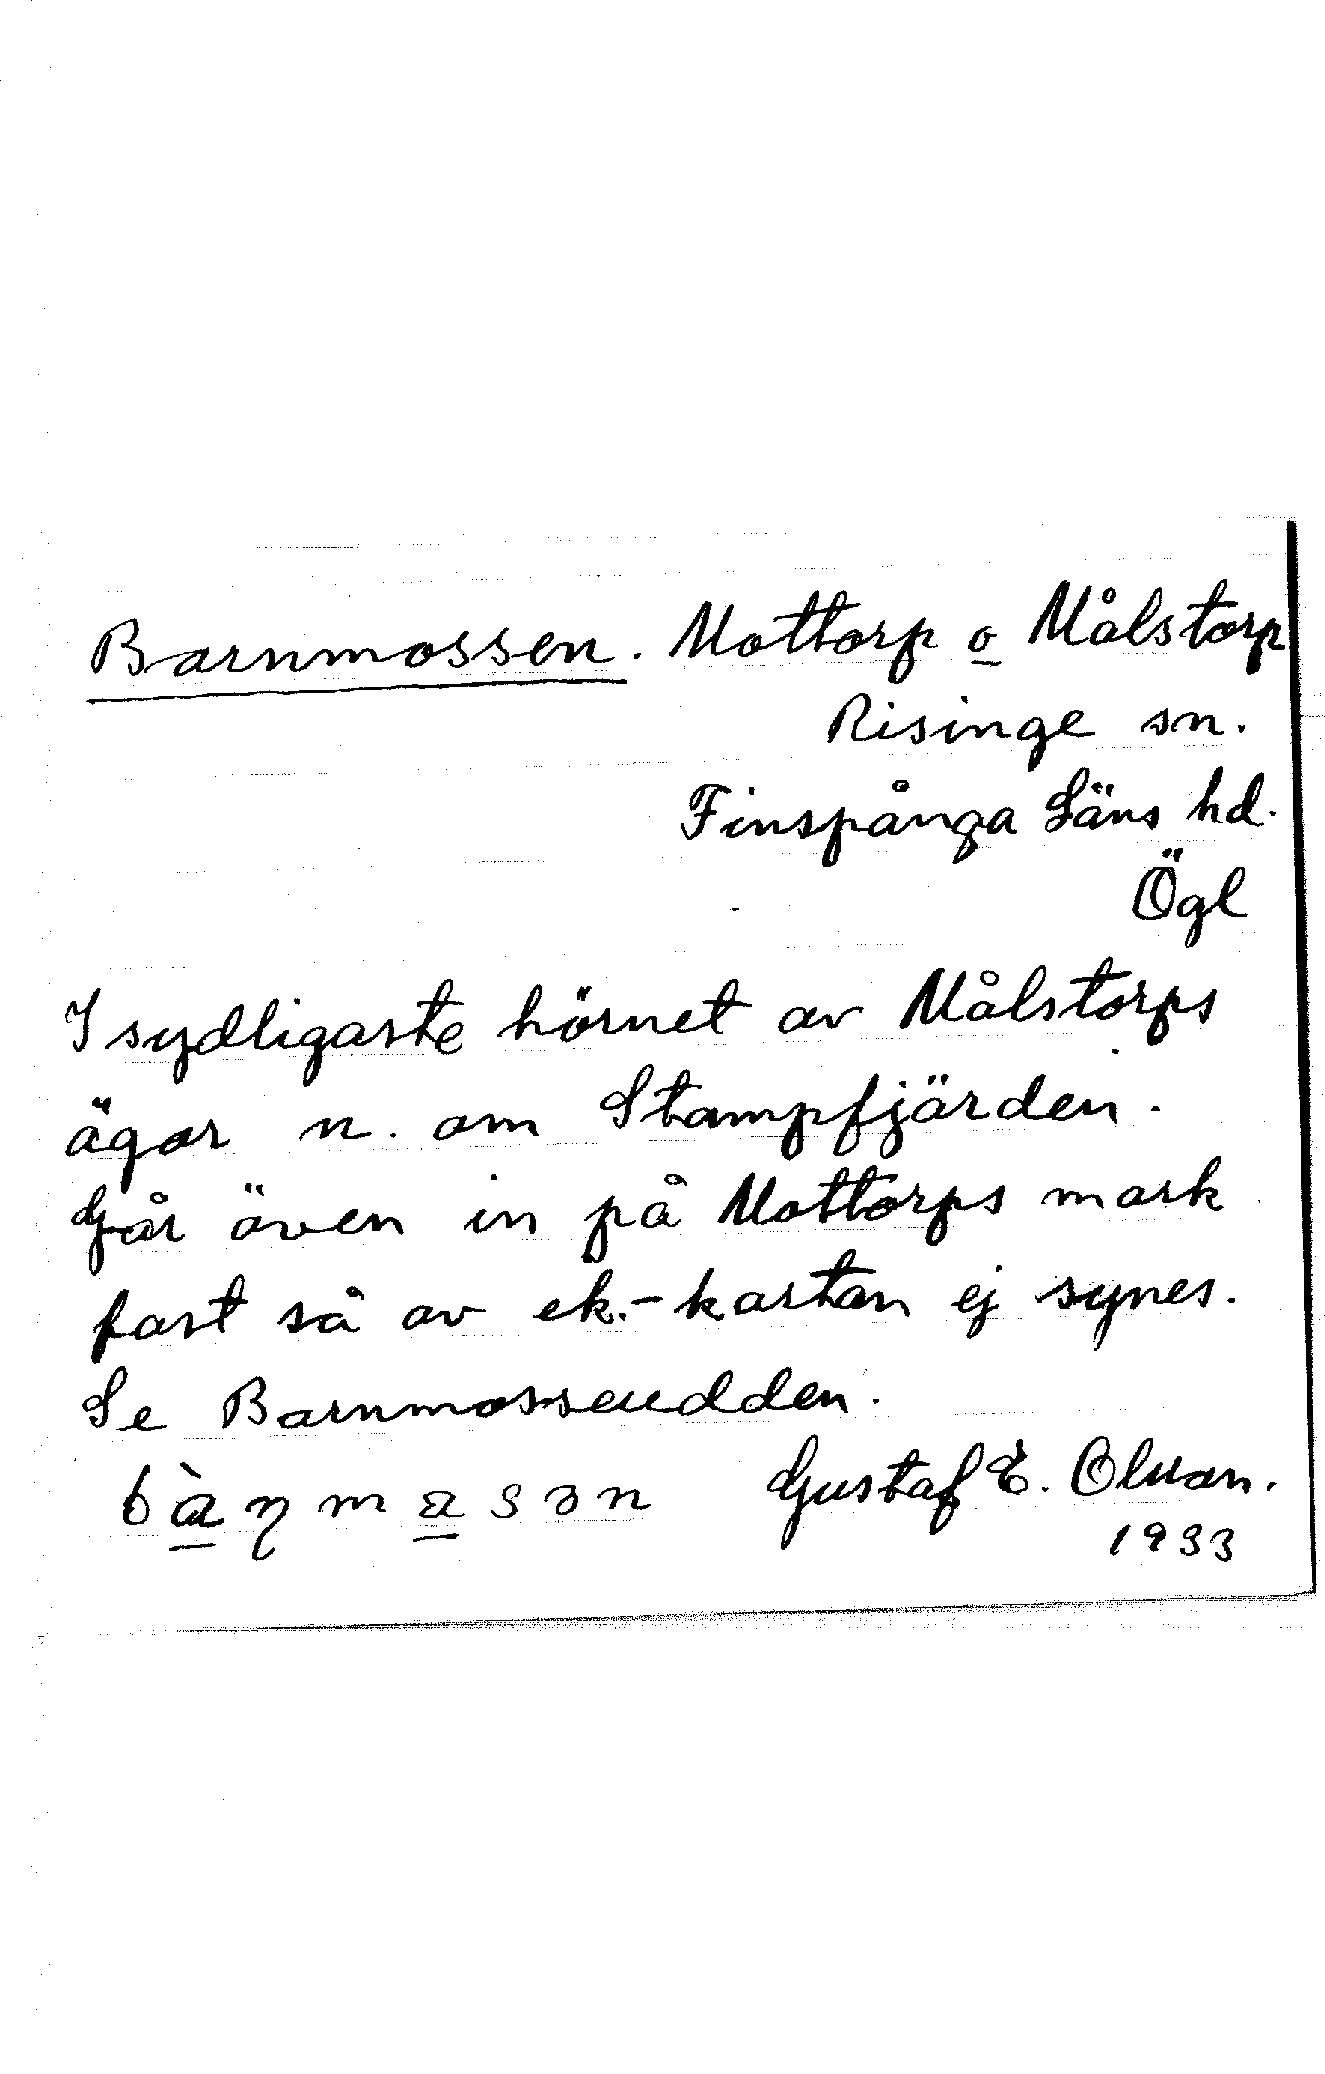 Barnmossen. Mottorp o Målstorp
Risinge sn.
Finspånga Läns hd.
Ögl
I sydligaste hörnet av Målstorps
ägor n. om Stampfjärden.
Går även in på Mottorps mark
fast så av ek.-kartan ej synes.
Se Barnmosseudden.
Gustaf E. Olsson.
1933